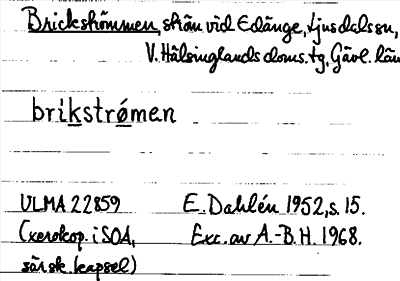 Brickströmmen, ström vid Edänge, Ljusdals sn,
V. Hälsinglands doms.tg, Gävl. län
brikstrømen
ULMA 22859 E. Dahlén 1952, s. 15.
(xerokop. i SOA, Exc. av A.-B.H. 1968.
särsk. kapsel)